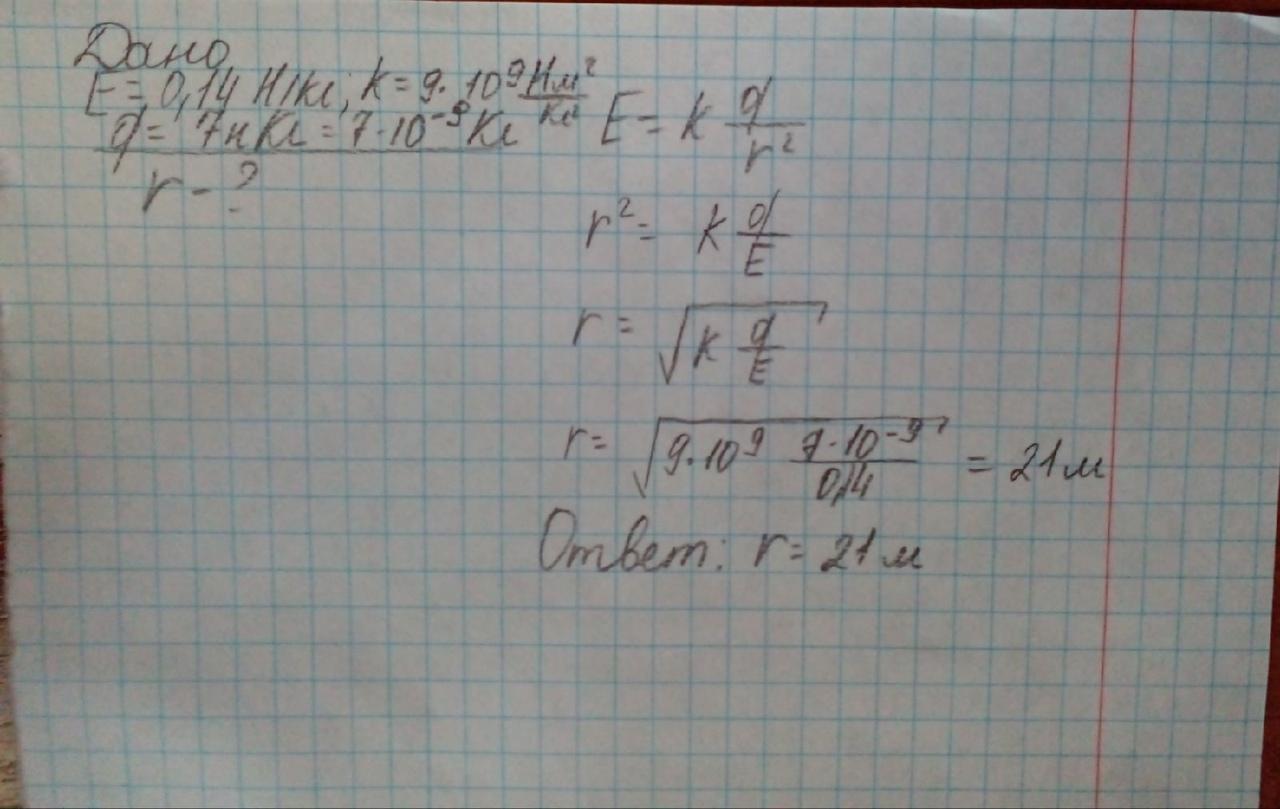 Дано
E = 0,14 Н/Кл; k = 9·10⁹ Нм²/Кл
q = 7нКл = 7·10⁻⁹ Кл
r - ?
E = k q/r²
r² = k q/E
r = √(k q/E)
r = √(9·10⁹ 7·10⁻⁹/0,14) = 21 м
Ответ: r = 21 м